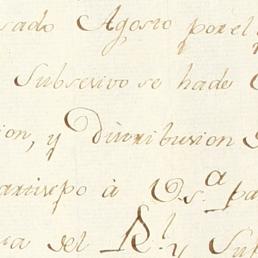 sado Agosto por el
Subsesivo se hade
ion, y Distribusion
artisipo à V.s.ª pa
ua del R.l y Sub